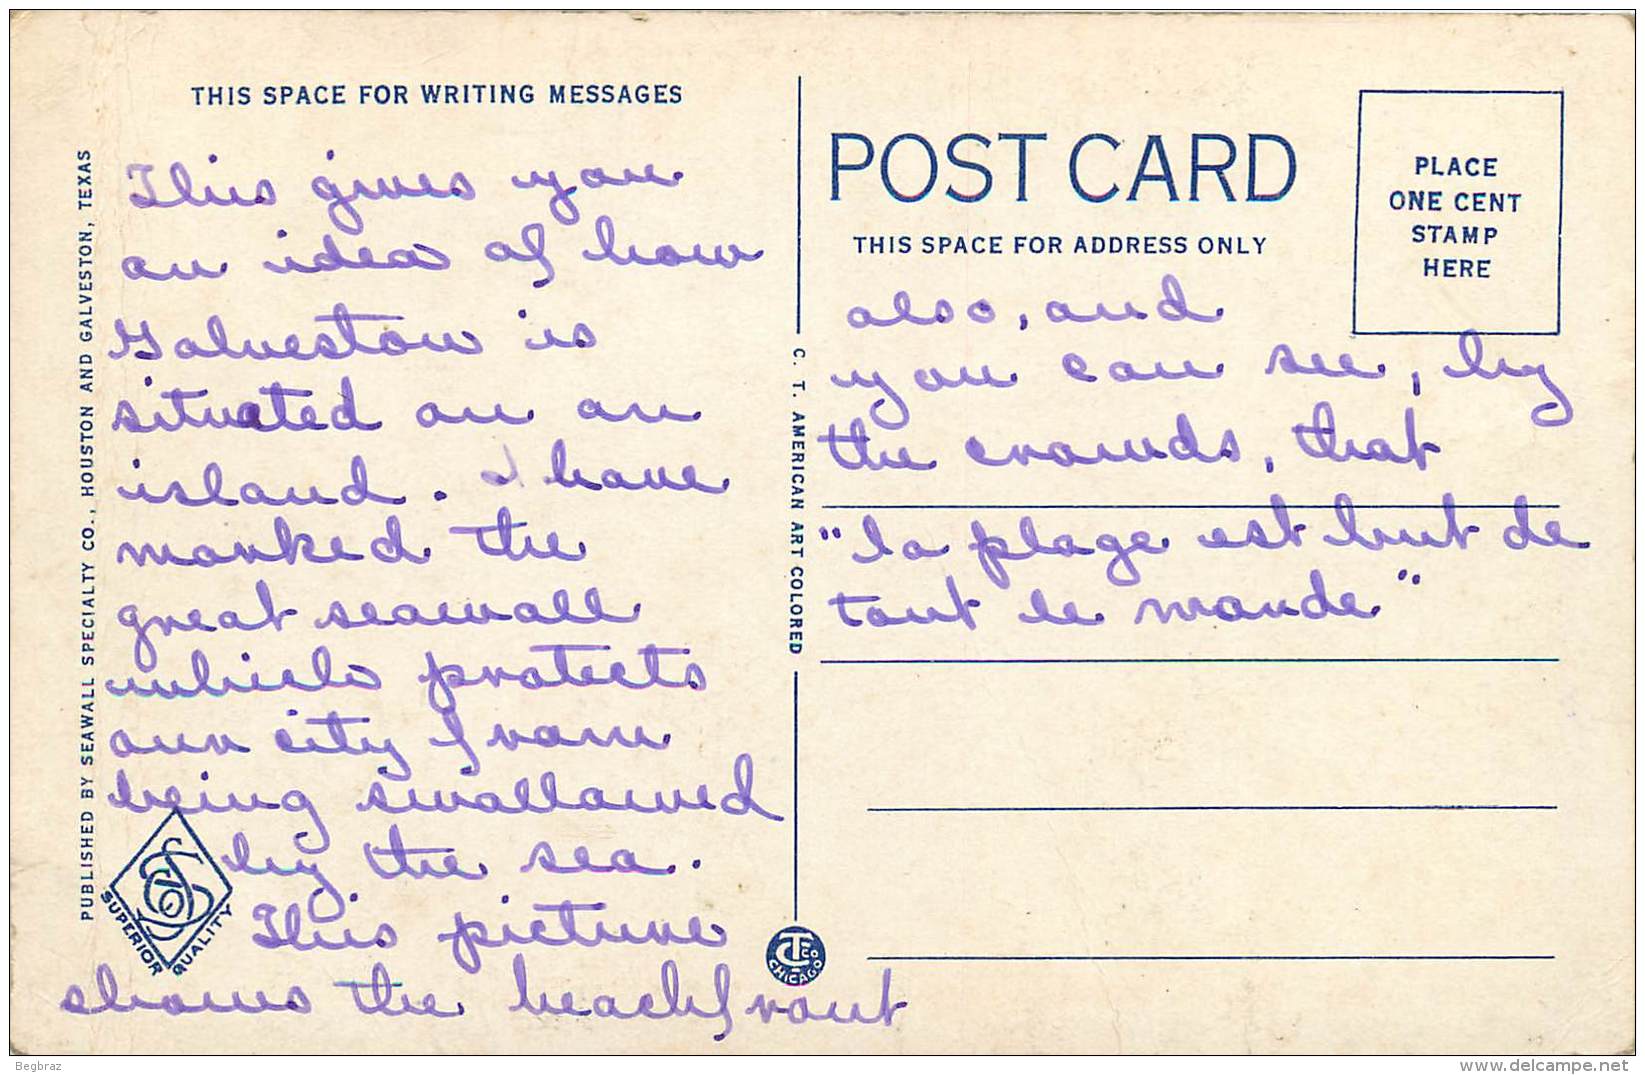 THIS SPACE FOR WRITING MESSAGES
This gives you
an idea of how
Galveston is
situated on an
island. I have
marked the
great seawall
which protects
our city from
being swallowed
by the sea.
This picture
shows the beachfront
PUBLISHED BY SEAWALL SPECIALTY CO., HOUSTON AND GALVESTON, TEXAS
SUPERIOR QUALITY
C. T. AMERICAN ART COLORED
CT CO
CHICAGO
POST CARD
THIS SPACE FOR ADDRESS ONLY
PLACE
ONE CENT
STAMP
HERE
also, and
you can see, by
the crowds, that
"la plage est but de
tout le monde"
Begbraz
www.delcampe.net